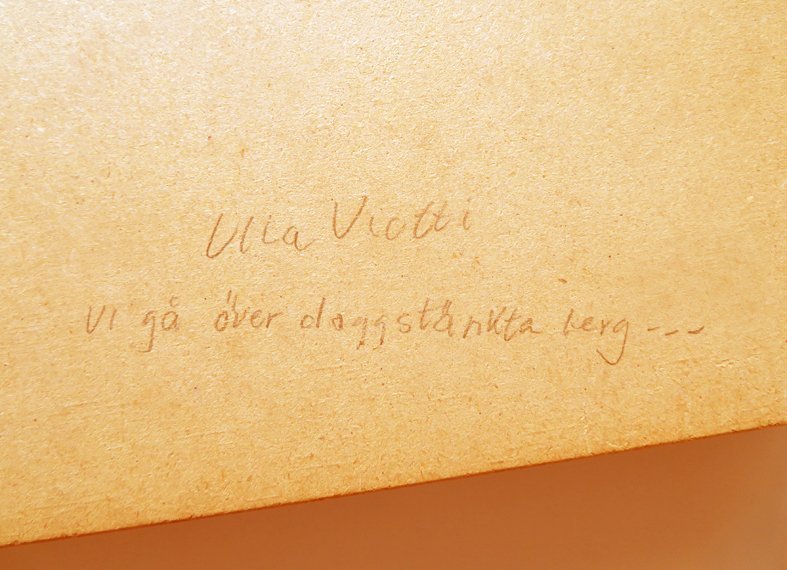 Ulla Viotti
Vi gå över daggstänkta berg---